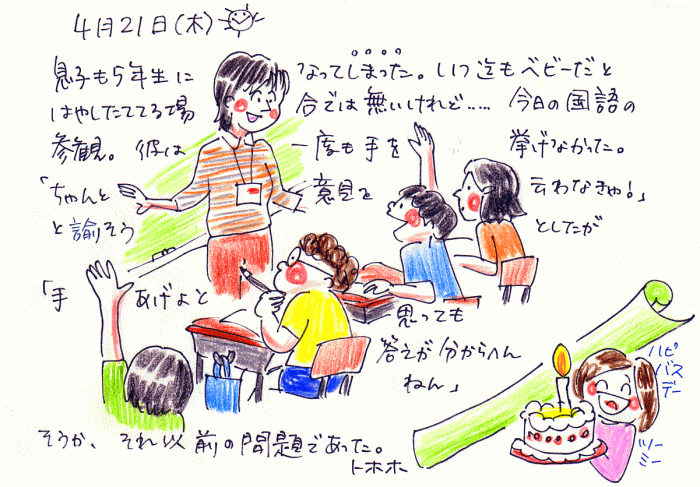 4月21日(木)
息子も5年生になってしまった。いつ迄もベビーだと
はやしたててる場合では無いけれど…‥ 今日の国語の
参観。彼は一度も手を挙げなかった。
「ちゃんと意見を云わなきゃ!」
と諭そうとしたが
「手あげよと思っても
答えが分からへん
ねん」
そうか、それ以前の問題であった。
トホホ
ハピ
バス
デー
ツー
ミー